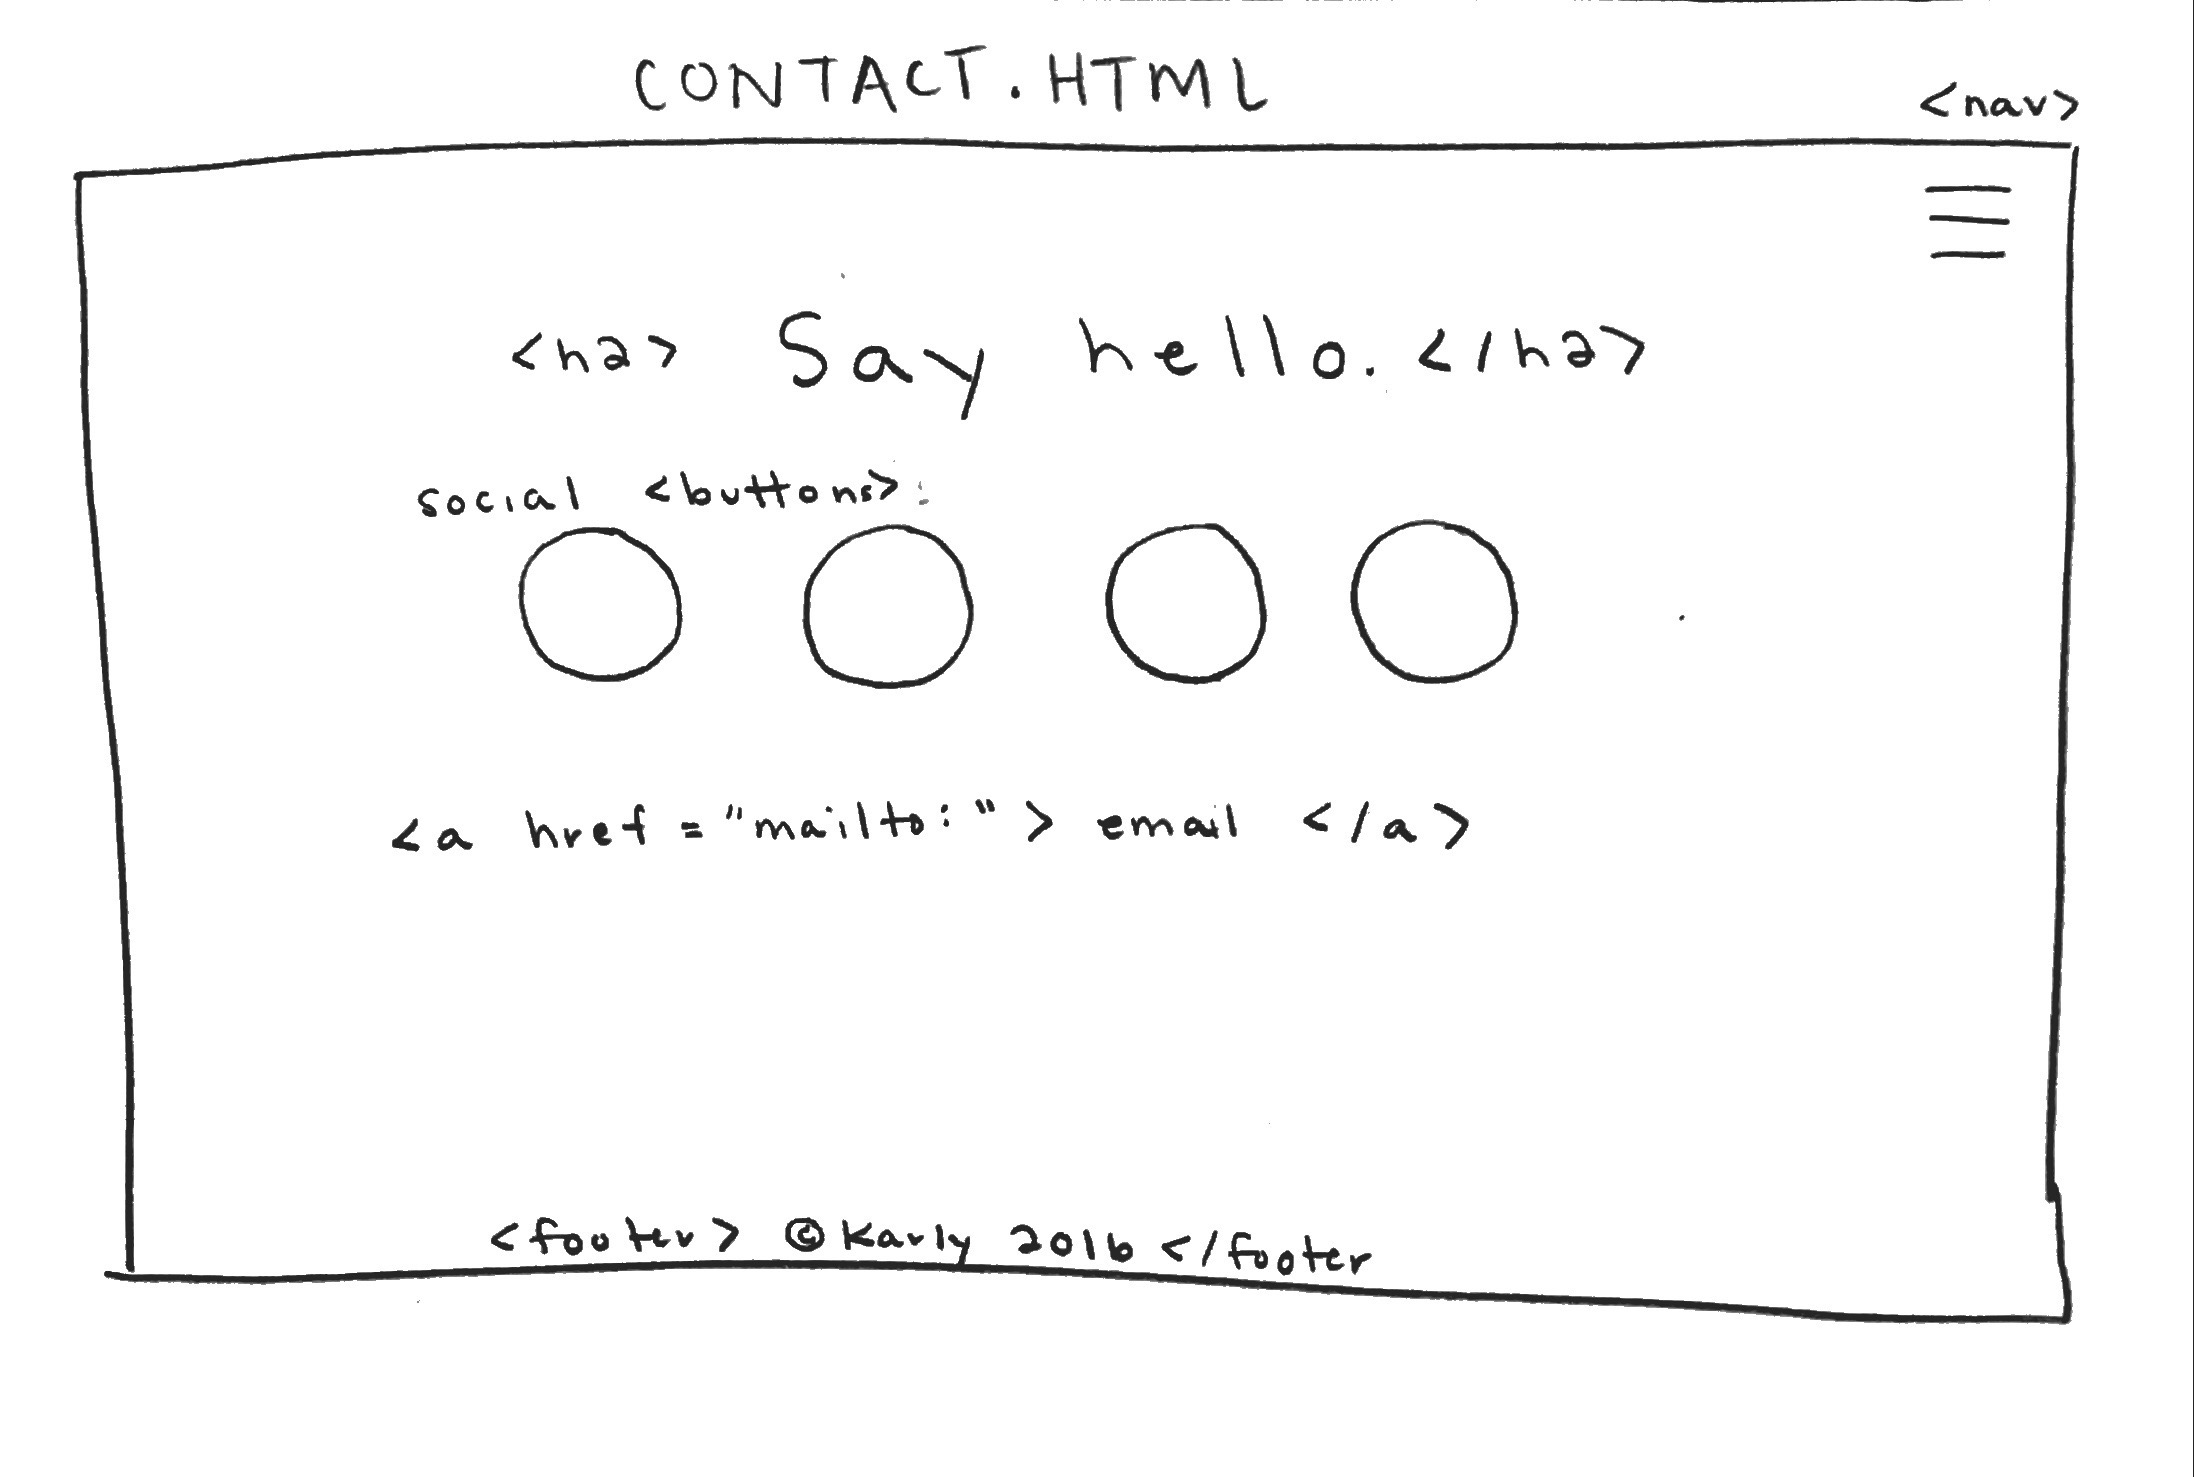 CONTACT.HTML
<nav>
<h2> Say hello. </h2>
social <buttons>:
<a href="mailto:"> email </a>
<footer> © Karly 2016 </footer